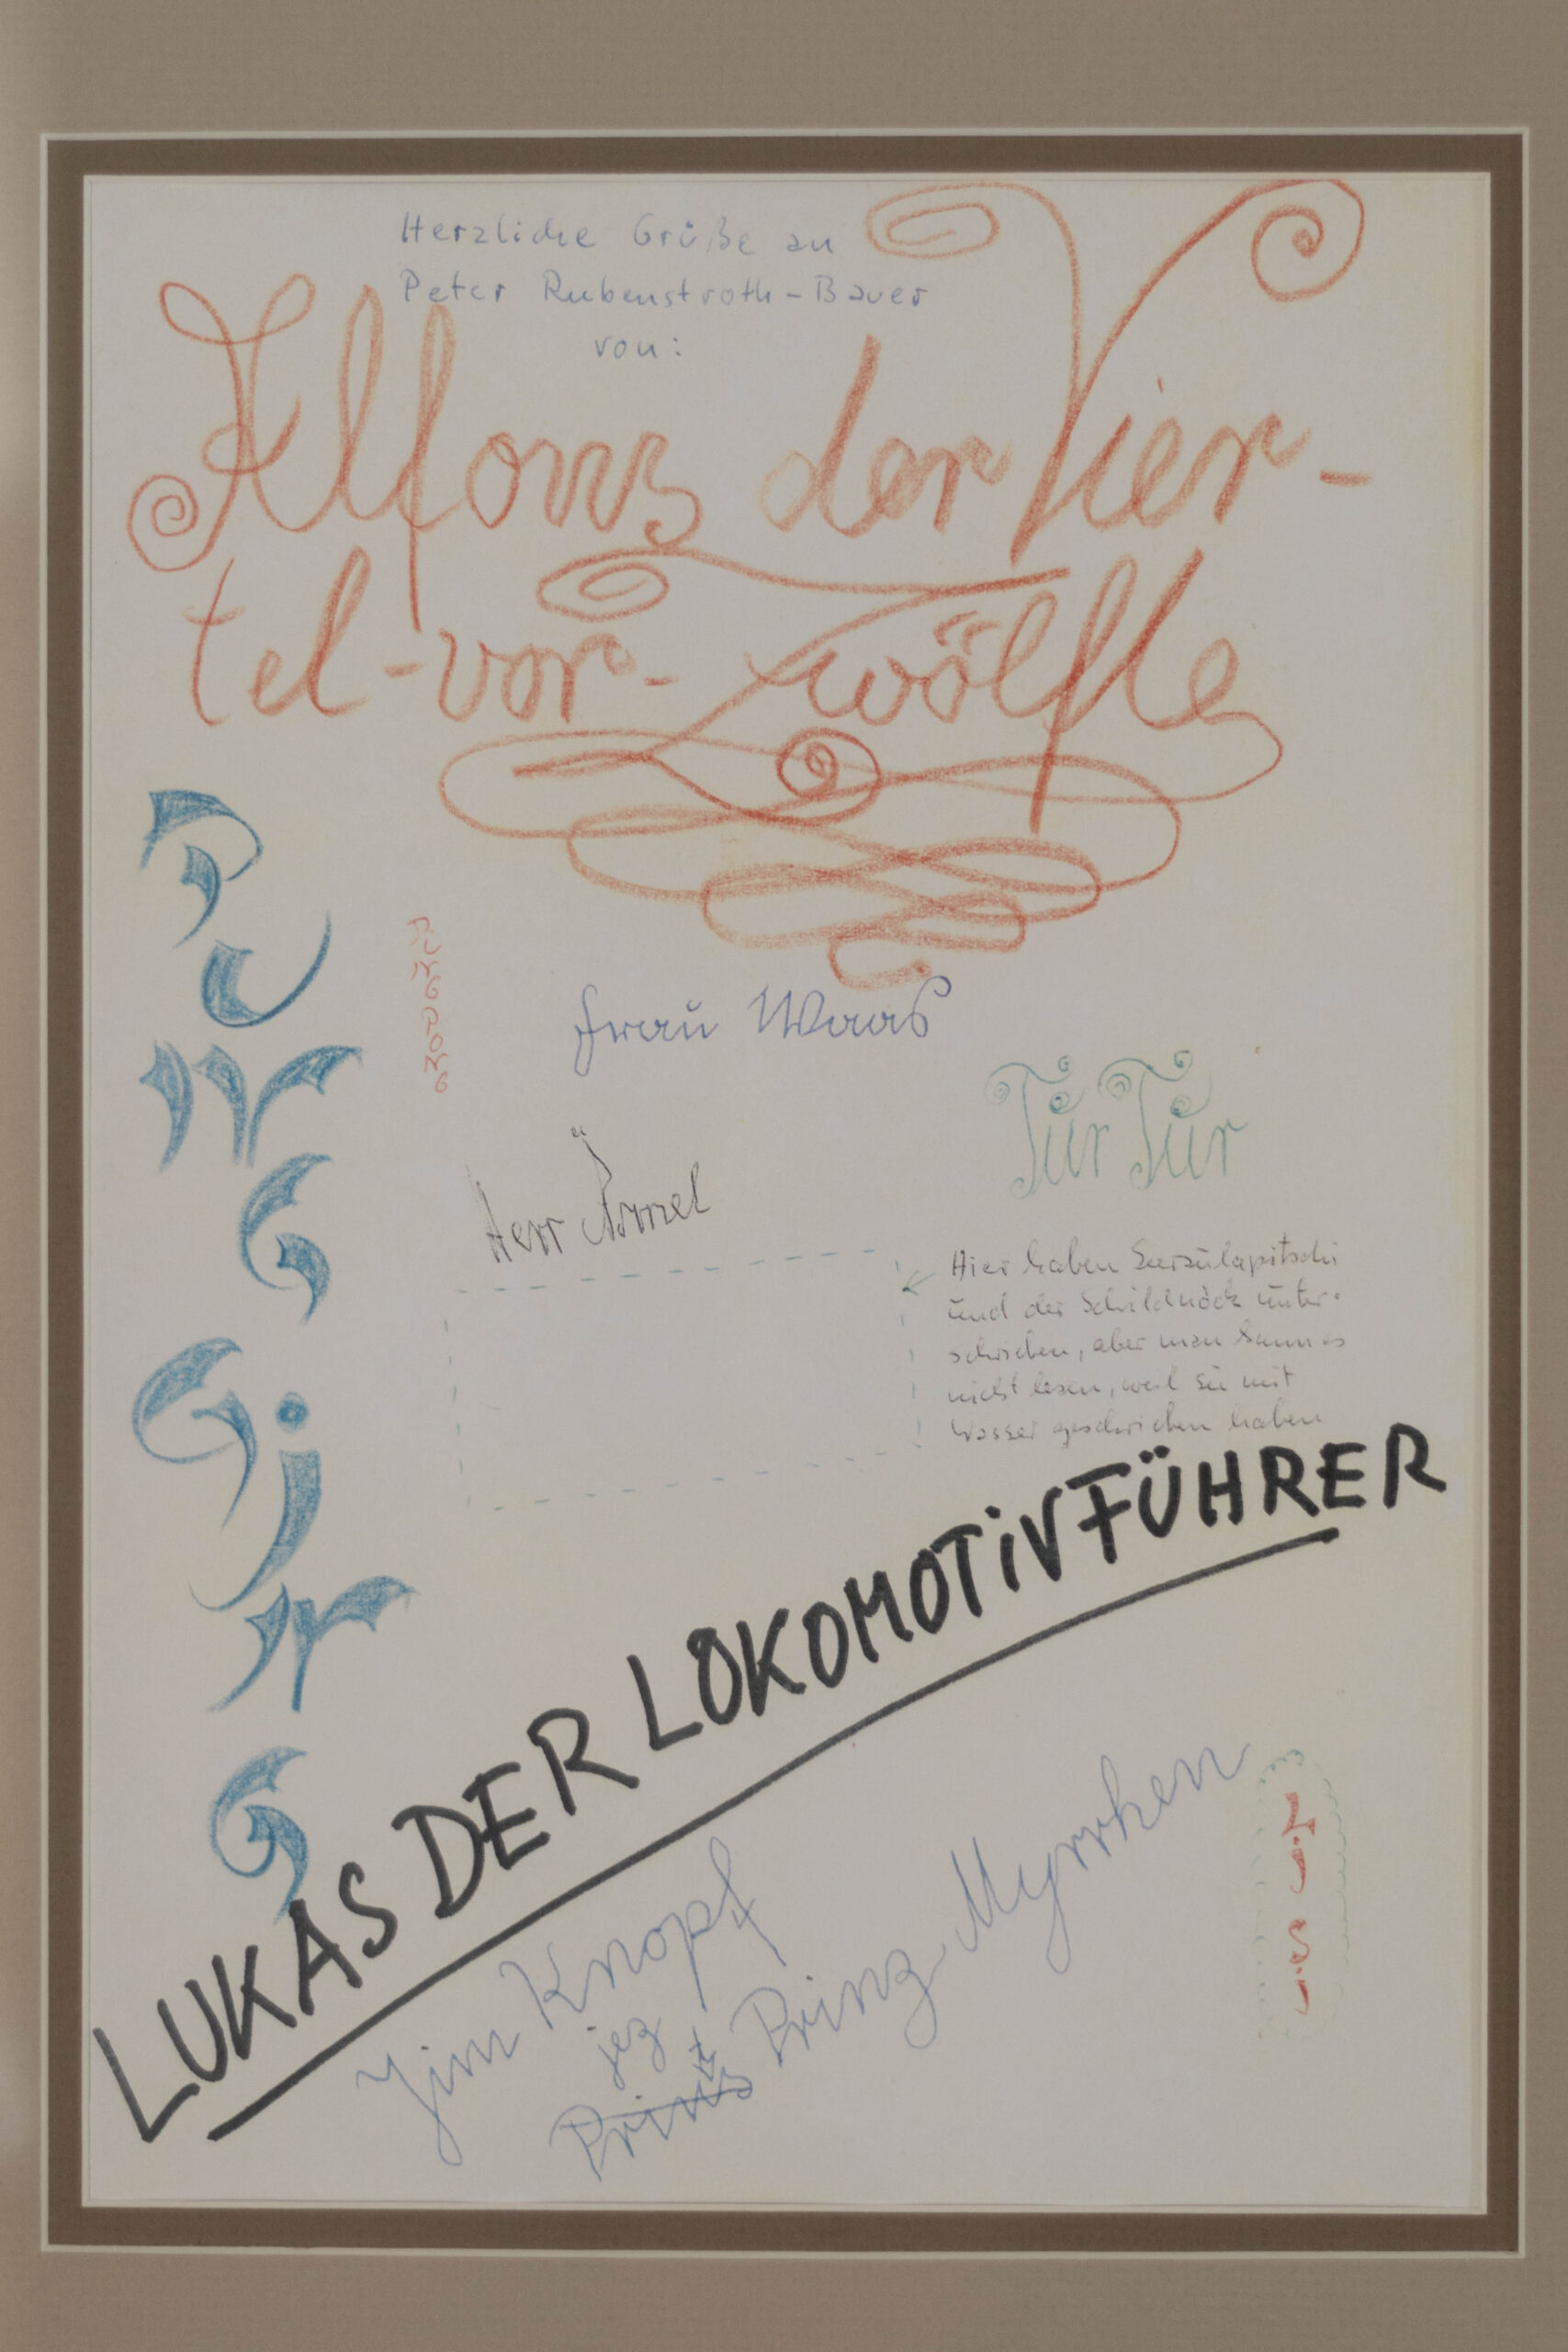 Herzliche Grüße an
Peter Rubenstroth-Bauer
von:
Alfons der Vier-
tel-vor-Zwölfte
PUNG GiNG
PiNG PONG
Frau Waas
Tür Tür
Herr Ärmel
Hier haben Sursulapitschi
und der Schildnöck unter-
schrieben, aber man kann es
nicht lesen, weil sie mit
Wasser geschrieben haben
LUKAS DER LOKOMOTiVFÜHRER
Jim Knopf
jez
Prinz Myrrhen
Li Si